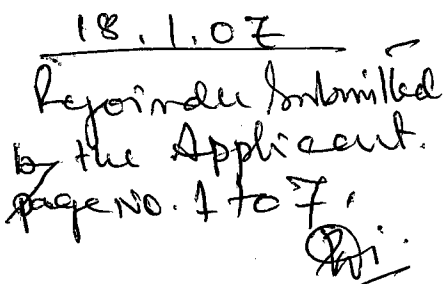 18.1.07
Rejoinder Submitted
by the Applicant.
page No. 1 to 7.